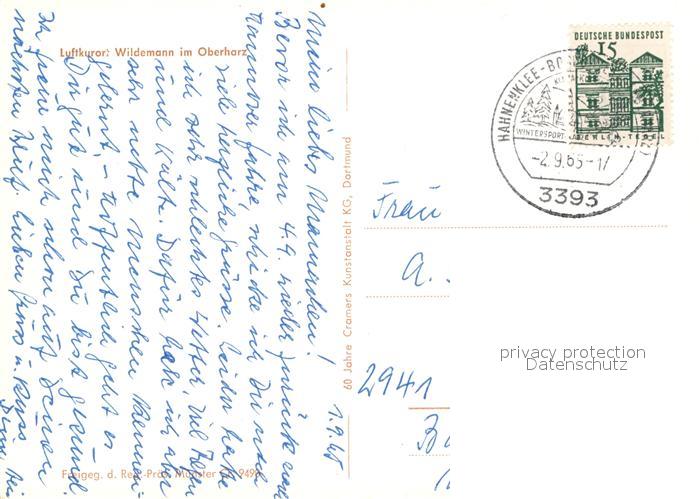 Luftkurort Wildemann im Oberharz
1.9.65
Mein liebes Mamachen!
Bevor ich am 4.9. wieder zurück nach
Hannover fahre, schicke ich Dir noch
viele herzliche Grüsse. Leider hatte
ich sehr schlechtes Wetter, viel Regen
und Kälte. Dafür habe ich aber
sehr nette Menschen kennen-
gelernt. - Hoffentlich geht es
Dir gut und Du bist gesund.
Ich freue mich schon auf Deinen
nächsten Anruf. Lieben Gruss u. Kuss
Freigeg. d. Reg.-Präs. Münster
60 Jahre Cramers Kunstanstalt KG, Dortmund
DEUTSCHE BUNDESPOST
15
BERLIN-TEGEL
HAHNENKLEE-BO
WINTERSPORT
-2.9.65-17
3393
Frau
A.
2941
privacy protection
Datenschutz